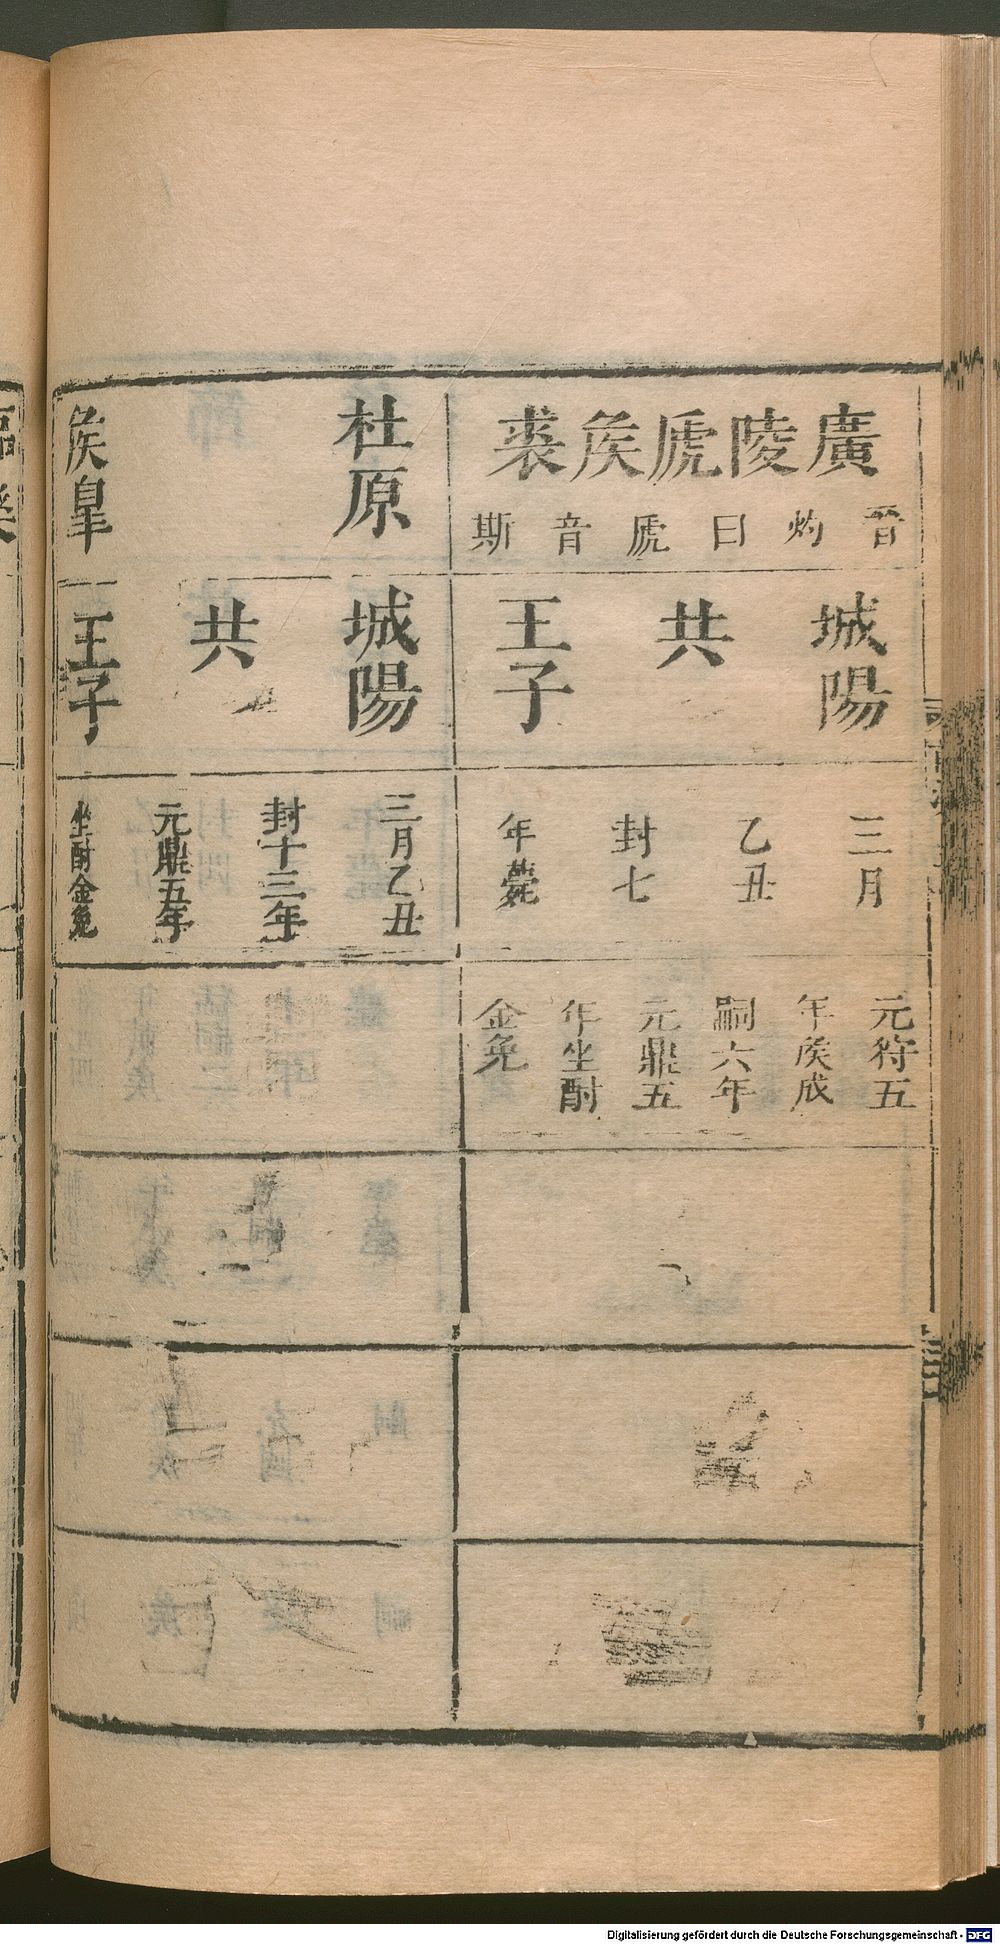 廣陵虒侯裘
晉灼曰虒音斯
城陽
共
王子
三月
乙丑
封七
年薨
元狩五
年侯成
嗣六年
元鼎五
年坐酎
金免
杜原
侯皐
城陽
共
王子
三月乙丑
封十三年
元鼎五年
坐酎金免
Digitalisierung gefördert durch die Deutsche Forschungsgemeinschaft - DFG